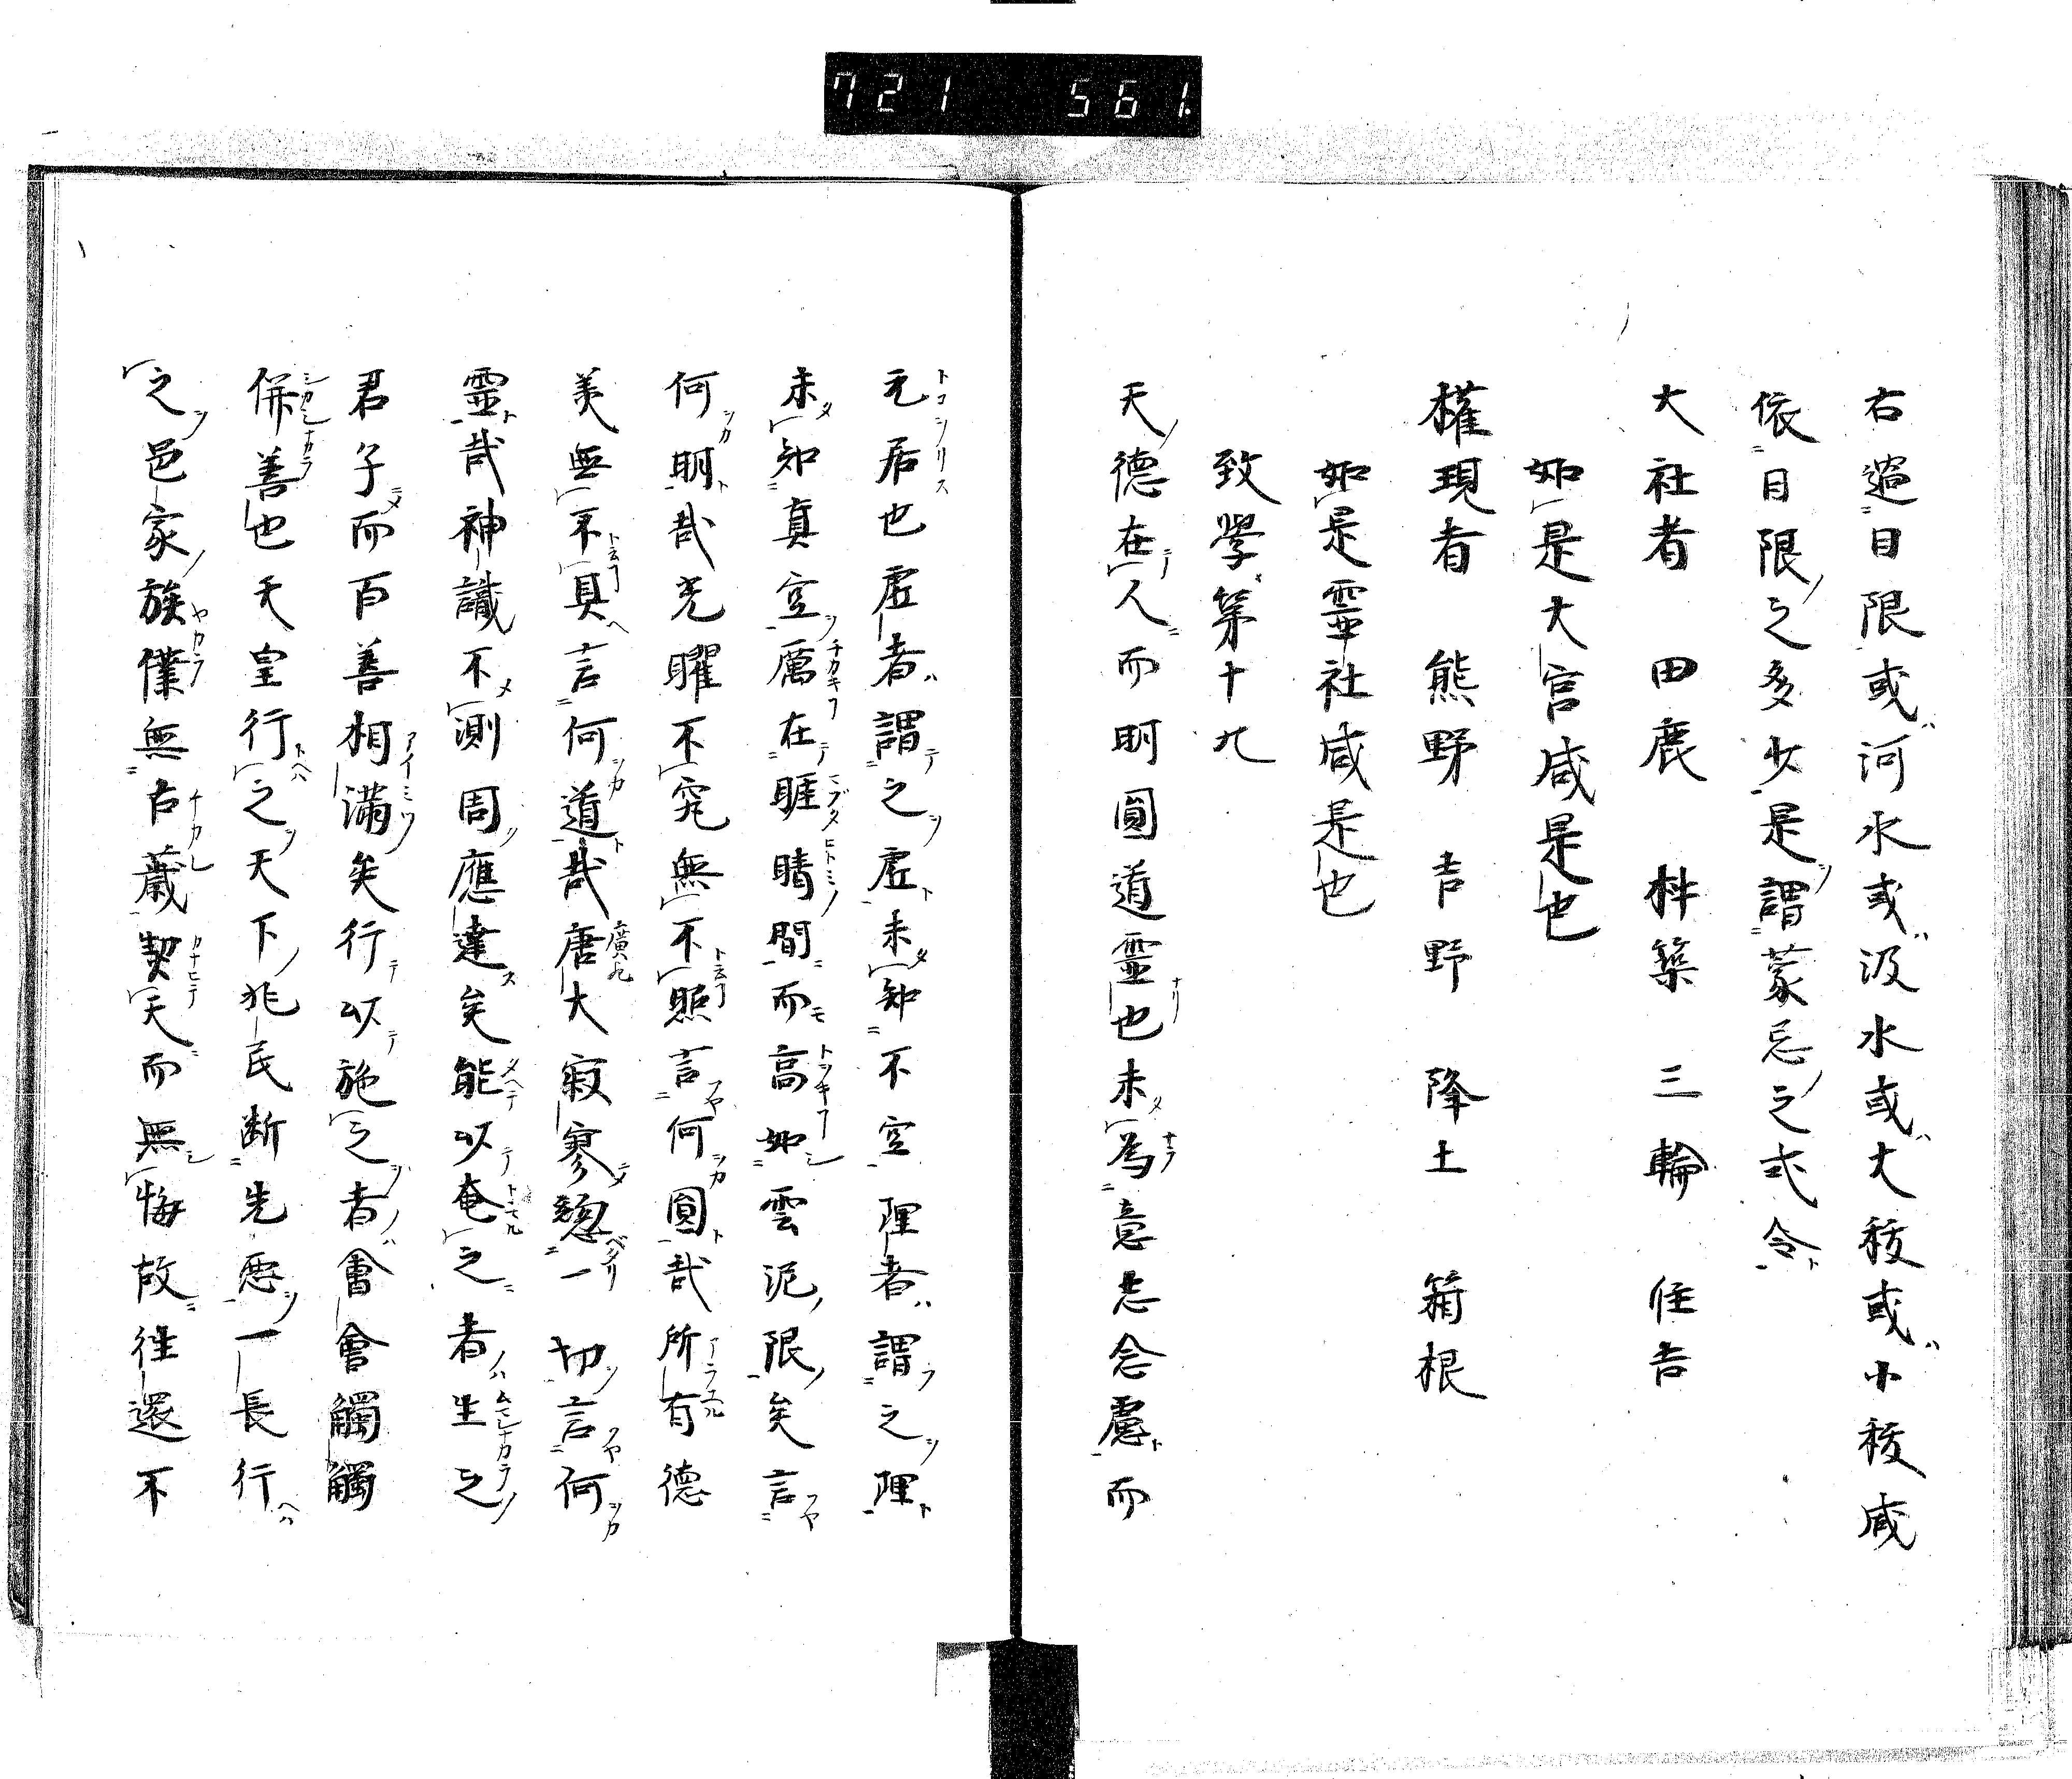 721 561.
右過日限或河水或汲水或大祓或小祓咸
依日限之多少是謂蒙忌之式令
大社者 田鹿 杵築 三輪 住吉
如是大宮咸是也
権現者 熊野 吉野 降土 箱根
如是霊社咸是也
致學第十九
天德在人而明圓道靈也未為意志念慮而
元居也虛者謂之虛未知不空理者謂之理
未知真空厲在睚睛間而高如雲泥限矣言
何明哉光曜不究無不照言何圓哉所有德
美無不具言何道哉唐大寂寥惣一切言何
靈哉神識不測周應達矣能以奄之者生之
君子而百善相満矣行以施之者會會觸觸
併善也天皇行之天下兆民断先惡一長行
之邑家族僕無古蔵契天而無悔故往還不